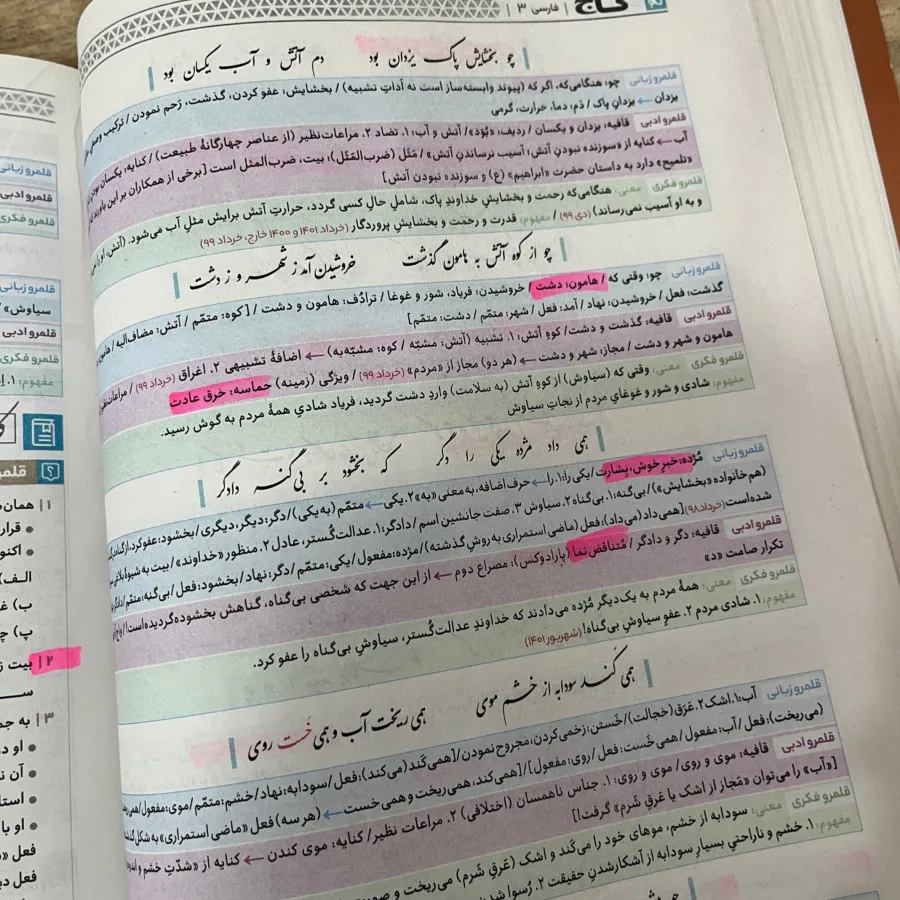 گاج | فارسی ۳ |
چو بخشایش پاک یزدان بود دم آتش و آب یکسان بود
قلمرو زبانی چو: هنگامی‌که، اگر که (پیوند وابسته‌ساز است نه اَداتِ تشبیه) / بخشایش: عفو کردن، گذشت، رَحم نمودن / ترکیب وصفی
یزدان ← یزدانِ پاک / دَم: دما، حرارت، گرمی
قلمرو ادبی قافیه: یزدان و یکسان / ردیف: «بُوَد»/ آتش و آب: ۱. تضاد ۲. مراعات‌نظیر (از عناصر چهارگانهٔ طبیعت) / کنایه: یکسان بودن
آب ← کنایه از «سوزنده نبودنِ آتش؛ آسیب نرساندنِ آتش» / مَثَل (ضرب‌المَثَل): بیت، ضرب‌المثل است [برخی از همکاران بر این باورند
«تلمیح» دارد به داستان حضرت «ابراهیم» (ع) و سوزنده نبودنِ آتش]
قلمرو فکری معنی: هنگامی‌که رحمت و بخشایشِ خداوندِ پاک، شاملِ حالِ کسی گردد، حرارتِ آتش برایش مثلِ آب می‌شود. (آتش، او را
و به او آسیب نمی‌رساند) (دی ۹۹) / مفهوم: قدرت و رحمت و بخشایشِ پروردگار (خرداد ۱۴۰۱ و ۱۴۰۰ خارج، خرداد ۹۹)
چو از کوه آتش به هامون گذشت خروشیدن آمد ز شهر و ز دشت
قلمرو زبانی چو: وقتی که / هامون: دشت / خروشیدن: فریاد، شور و غوغا / ترادُف: هامون و دشت / [کوه: متمّم / آتش: مضاف‌الیه / هامون
گذشت: فعل / خروشیدن: نهاد / آمد: فعل / شهر: متمّم / دشت: متمّم]
قلمرو ادبی قافیه: گذشت و دشت/ کوهِ آتش: ۱. تشبیه (آتش: مشبّه / کوه: مشبّه‌به) ← اضافهٔ تشبیهی ۲. اغراق (خرداد ۹۹) / مراعات‌نظیر
هامون و شهر و دشت / مجاز: شهر و دشت ← (هر دو) مجاز از «مردم» (خرداد ۹۹) / ویژگی (زمینه) حماسه: خرق عادت
قلمرو فکری معنی: وقتی که (سیاوش) از کوهِ آتش (به سلامت) واردِ دشت گردید، فریاد شادیِ همهٔ مردم به گوش رسید.
مفهوم: شادی و شور و غوغایِ مردم از نجاتِ سیاوش
همی داد مژده یکی را دگر که بخشود بر بی‌گنه دادگر
قلمرو زبانی مُژده: خبرِ خوش، بِشارت / یکی را: ۱. را ← حرف اضافه، به معنی «به» ۲. یکی ← متمّم (به یکی) / دگر: دیگر، دیگری / بخشود: عفو کرد، از گناه
(هم‌خانواده «بخشایش») / بی‌گنه: ۱. بی‌گناه ۲. سیاوش ۳. صفت جانشین اسم / دادگر: ۱. عدالت‌گستر، عادل ۲. منظور «خداوند» / بیت به شیوهٔ بلاغی
شده است (خرداد ۹۸) [همی داد (می‌داد): فعل (ماضی استمراری به روشِ گذشته) / مژده: مفعول / یکی: متمّم / دگر: نهاد / بخشود: فعل / بی‌گنه: متمّم / دادگر
قلمرو ادبی قافیه: دگر و دادگر / مُتناقض‌نما (پارادوکس): مصراع دوم ← از این جهت که شخصی بی‌گناه، گناهش بخشوده گردیده است!
تکرار صامت «د»
قلمرو فکری معنی: همهٔ مردم به یک‌دیگر مُژده می‌دادند که خداوندِ عدالت‌گُستر، سیاوشِ بی‌گناه را عفو کرد.
مفهوم: ۱. شادی مردم ۲. عفوِ سیاوشِ بی‌گناه! (شهریور ۱۴۰۱)
همی کَند سودابه از خشم موی همی ریخت آب و همی خَست روی
قلمرو زبانی آب: ۱. اشک ۲. عَرَق (خجالت) / خَستن: زخمی کردن، مجروح نمودن / [همی کَند (می‌کَند): فعل / سودابه: نهاد / خشم: متمّم / موی: مفعول / همی
(می‌ریخت): فعل / آب: مفعول / همی خَست: فعل / روی: مفعول] / [همی کند، همی ریخت و همی خست ← (هر سه) فعل «ماضی استمراری» به شکل
قلمرو ادبی قافیه: موی و روی / موی و روی: ۱. جناس ناهمسان (اختلافی) ۲. مراعات نظیر / کنایه: موی کندن ← کنایه از «شدّتِ خشم و
[«آب» را می‌توان «مَجاز از اشک یا عَرقِ شَرم» گرفت!]
قلمرو فکری معنی: سودابه از خشم، موهای خود را می‌کَند و اشک (عَرقِ شَرم) می‌ریخت و
مفهوم: ۱. خشم و ناراحتیِ بسیارِ سودابه از آشکارشدنِ حقیقت ۲. رُسوا
قلمرو زبانی
قلمرو ادبی
قلمرو فکری
قلمرو زبانی
سیاوش»
قلمرو ادبی
قلمرو فکری
مفهوم: ۱.
۱ |
قرار
اکنو
الف)
ب)
پ)
۲ | بیت
۳ | به
او
آن
استا
او با
فعل
فعل